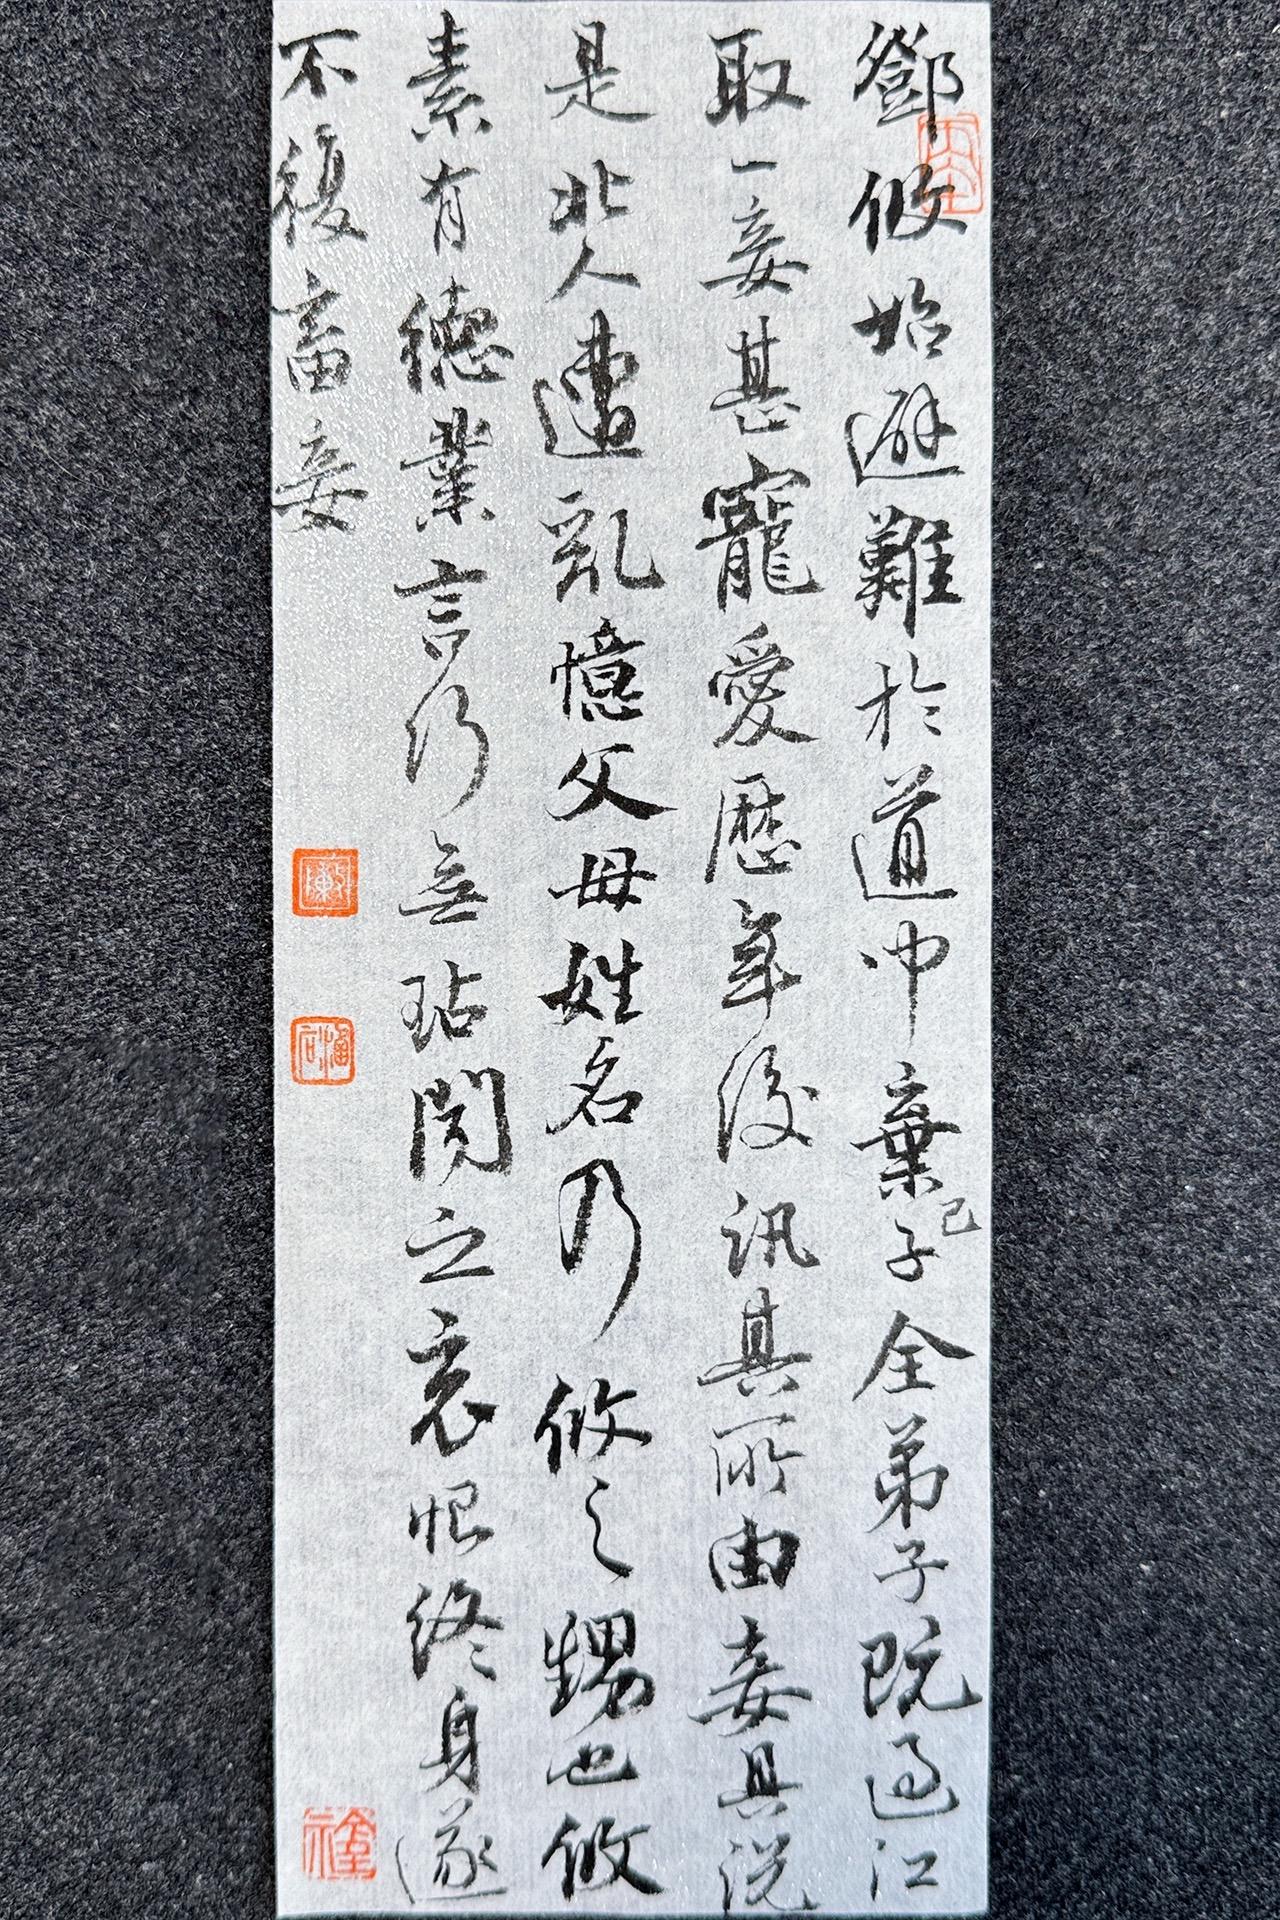 鄧攸始避難於道中棄己子全弟子既過江
取一妾甚寵愛歷年後訊其所由妾具說
是北人遭亂憶父母姓名乃攸之甥也攸
素有德業言行無玷聞之哀恨終身遂
不復畜妾